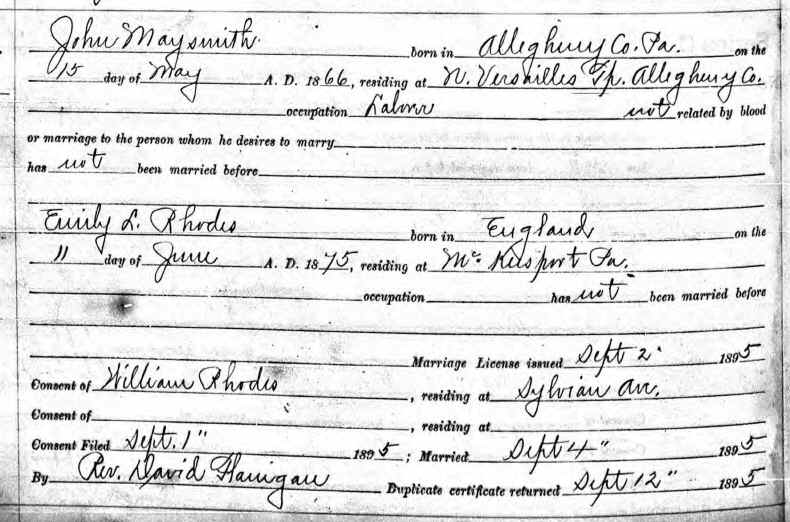 John Maysmith born in Allegheny Co. Pa. on the
15 day of May A. D. 1866, residing at N. Versailles Tp. Allegheny Co.
occupation Laborer not related by blood
or marriage to the person whom he desires to marry
has not been married before
Emily L. Rhodes born in England on the
11 day of June A. D. 1875, residing at Mc. Keesport Pa.
occupation has not been married before
Marriage License issued Sept 2" 1895
Consent of William Rhodes, residing at Sylvian Av.
Consent of, residing at
Consent Filed Sept. 1" 1895; Married Sept 4" 1895
By Rev. David Flanigan Duplicate certificate returned Sept 12" 1895